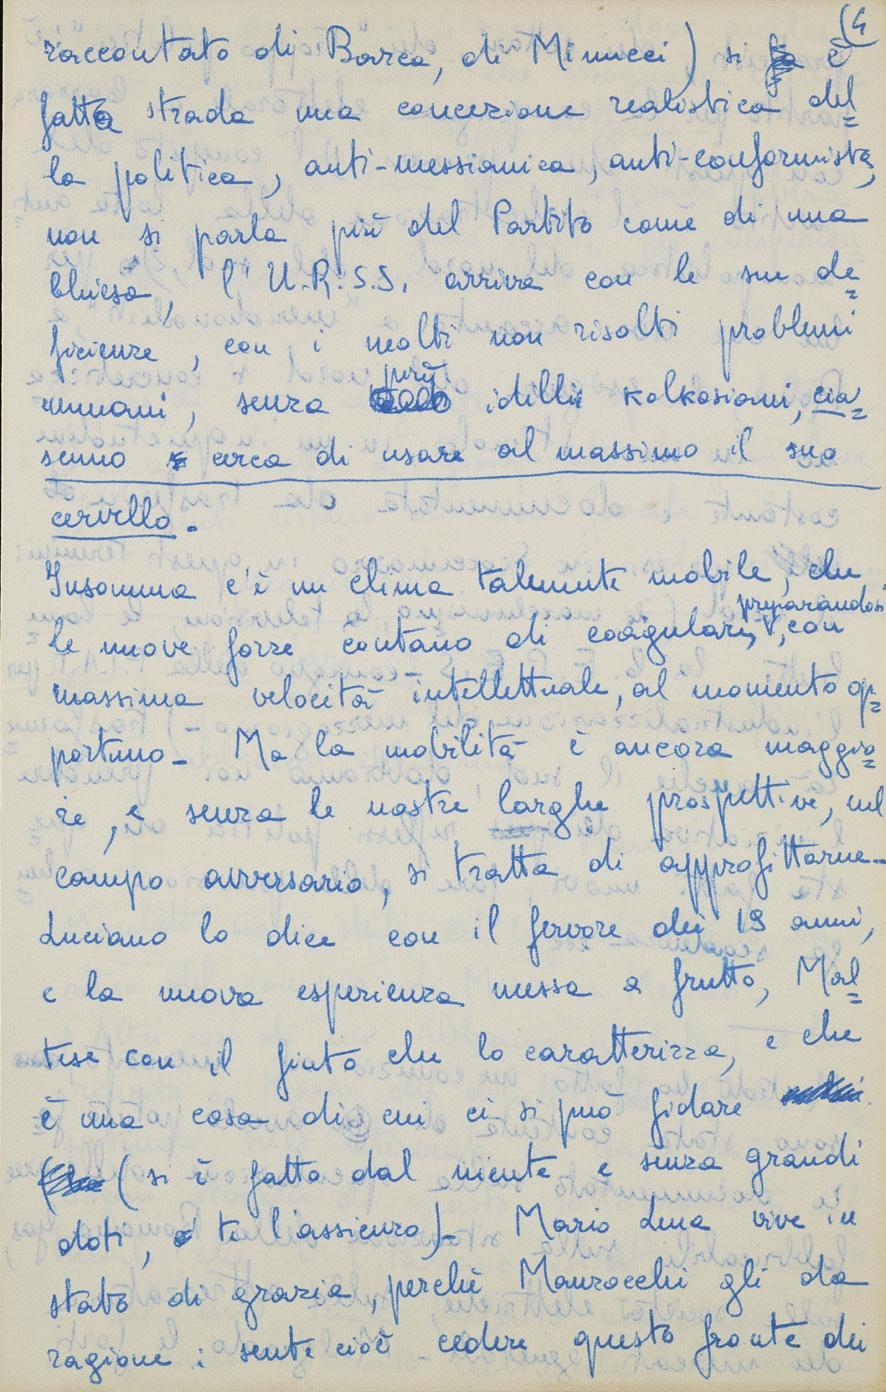 (4
raccontato di Barca, di Minucci) si è
fatta strada una concezione realistica del=
la politica, anti-messianica, anti-conformista,
non si parla più del Partito come di una
chiesa, l'U.R.S.S. arriva con le sue de=
ficienze, con i molti non risolti problemi
umani, senza più idillii kolkosiani, cia=
scuno cerca di usare al massimo il suo
cervello.
Insomma c'è un clima talmente mobile, che
le nuove forze contano di coagularsi, preparandosi, con
massima velocità intellettuale, al momento op=
portuno - Ma la mobilità è ancora maggio=
re, e senza le nostre larghe prospettive, nel
campo avversario, si tratta di approfittarne -
Luciano lo dice con il fervore dei 19 anni,
e la nuova esperienza messa a frutto, Mal=
tese con il fiuto che lo caratterizza, e che
è una cosa di cui ci si può fidare
(si è fatto dal niente e senza grandi
doti, te l'assicuro) - Mario Luna vive in
stato di grazia, perchè Manzocchi gli da
ragione: sente cioè cedere questo fronte dei